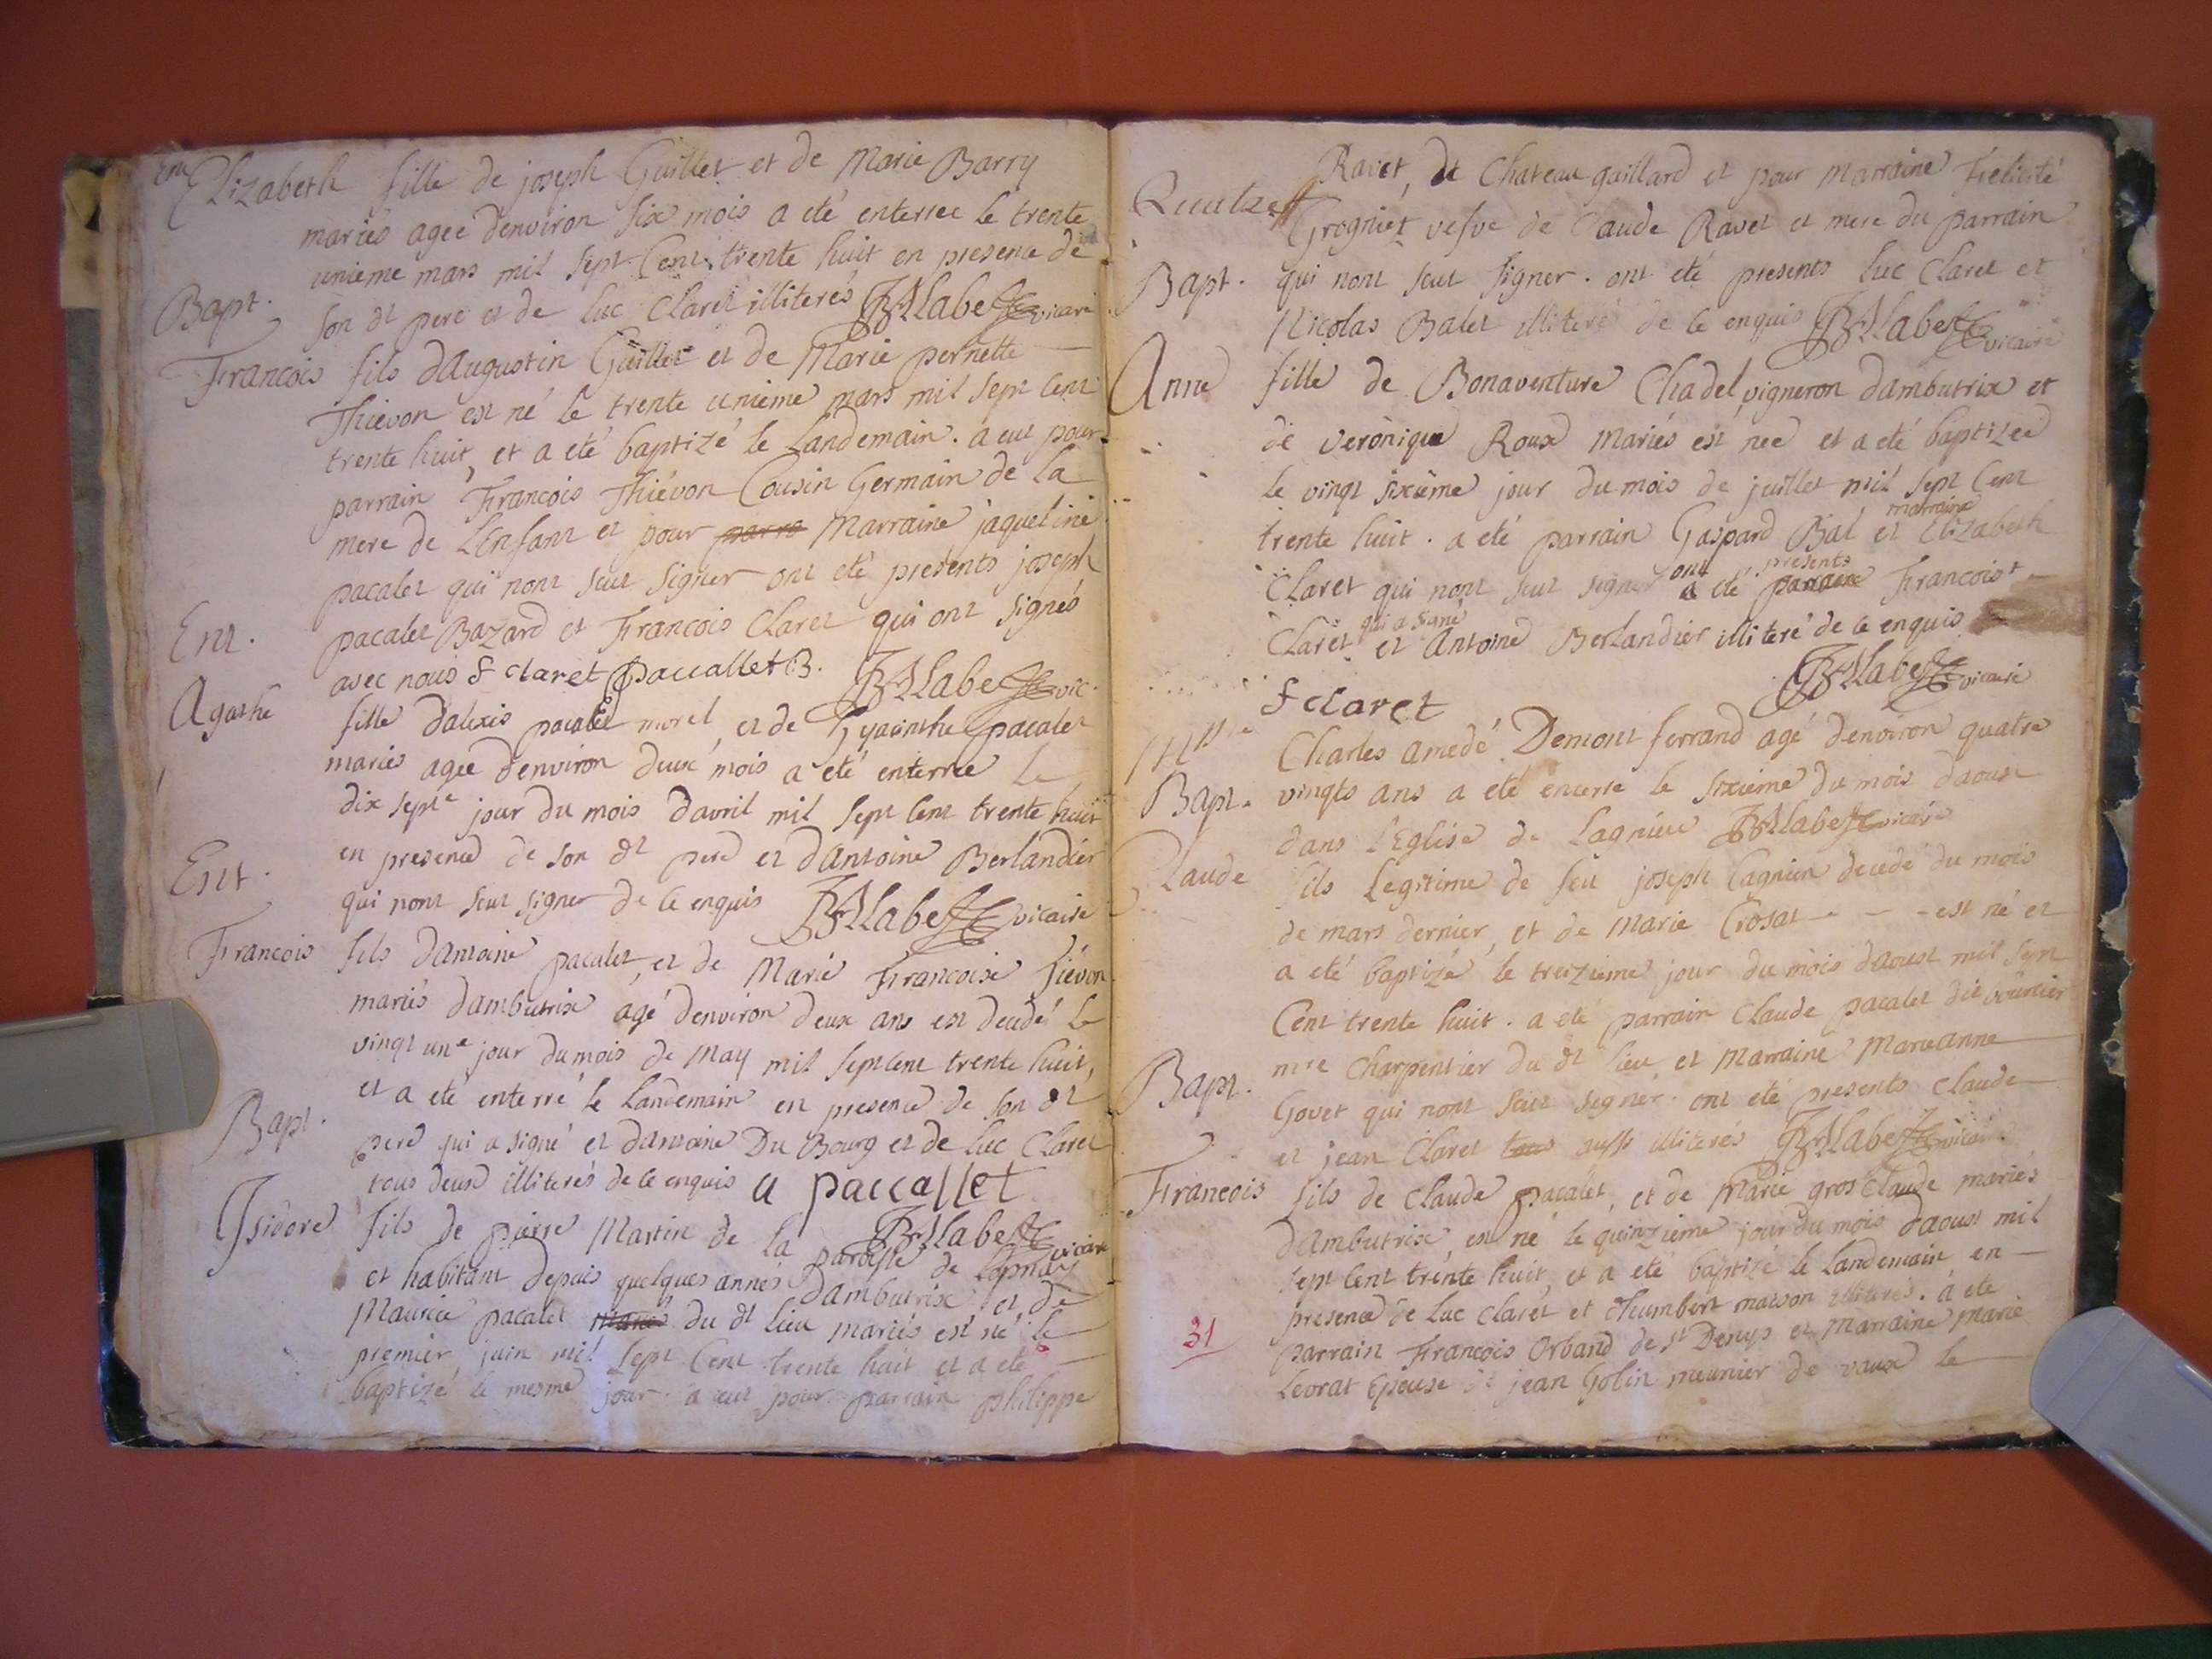 Ent
Elizabeth fille de joseph Guillet et de Marie Barry
mariés agée denviron six mois a eté enterrée le trente
unieme mars mil sept Cent trente huit en presence de
son dt pere et de luc Claret illiterés Labe vicaire
Bapt.
François fils dAugustin Guillet et de Marie pernette
Thievon est né le trente unieme mars mil sept Cent
trente huit, et a eté baptizé le Landemain. a eut pour
parrain François Thiévon Cousin Germain de La
mere de LEnfant et pour parra Marraine jaqueline
pacalet qui nont scut signer ont eté presents joseph
pacalet Bazard et François Claret qui ont signés
avec nous F claret Paccallet B. Labe vic.
Ent.
Agathe fille dalexis pacalet morel, et de Hyacinthe pacalet
mariés agée denviron deux mois a eté enterrée le
dix septe jour du mois davril mil sept Cent trente huit
en presence de son dt pere et dAntoine Berlandier
qui nont scut signer de ce enquis Labe vicaire
Ent.
François fils dAntoine pacalet, et de Marie Françoise Tiévon
mariés dambutrix agé denviron deux ans est decedé le
vingt une jour du mois de May mil sept Cent trente huit,
et a eté enterré le Landemain en presence de son dt
pere qui a signé et dAntoine Du Bourg et de luc Claret
tous deux illiterés de ce enquis a paccallet
Labe vicaire
Bapt.
Isidore fils de pierre Martin de la paroisse de
et habitant depuis quelques annés dambutrix et de
Maurice pacalet mariés du dt lieu mariés est né le
premier juin mil sept Cent trente huit et a eté
baptizé le mesme jour. a eut pour parrain philippe
Ravet, de Chateau gaillard et pour marraine Felicité
Grogniet vefve de Claude Ravet et mere du parrain
qui nont scut signer. ont eté presents luc Claret et
Nicolas Balet illiteré de ce enquis Labe vicaire
Bapt.
Anne fille de Bonaventure Chadel, vigneron dambutrix et
de veronique Roux mariés est née et a eté baptizée
le vingt sixiéme jour du mois de juillet mil sept Cent
trente huit. a eté parrain Gaspard Bal et marraine Elizabeth
Claret qui nont scut signer ont a eté presents parrain François
Claret qui a signé et Antoine Berlandier illiteré de ce enquis
F claret Labe vicaire
Charles amedé Demont ferrand agé denviron quatre
vingts ans a eté enterré le sixieme du mois daoust
dans LEglise de Lagnieu Labe vicaire
Bapt.
Claude fils Legitime de feu joseph Cagnin decedé du mois
de mars dernier, et de Marie Crosat - - - est né et
a eté baptizé le treizieme jour du mois daoust mil sept
Cent trente huit. a eté parrain Claude pacalet dit vourlier
mre Charpentier du dt lieu, et Marraine Marieanne
Govet qui nont scut signer. ont eté presents Claude
et jean Claret tous aussi illiterés Labe vicaire
Bapt.
François fils de Claude pacalet, et de Marie gros Claude mariés
dambutrix, est né le quinzieme jour du mois daoust mil
sept Cent trente huit, et a eté baptizé le Landemain en
presence de Luc Claret et Humbert masson illiterés. a eté
parrain François Orband de st Denys et Marraine Marie
Levrat Epouse de jean Golin meunier de vaux le
31